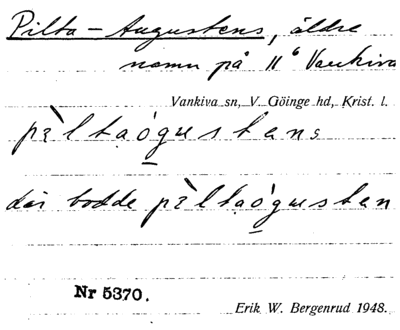 Pilta-Augustens, äldre
namn på 11⁶ Vankiva
Vankiva sn, V. Göinge hd, Krist. l.
pèltaógustens
där bodde pèltaógusten
Nr 5370.
Erik W. Bergenrud 1948.